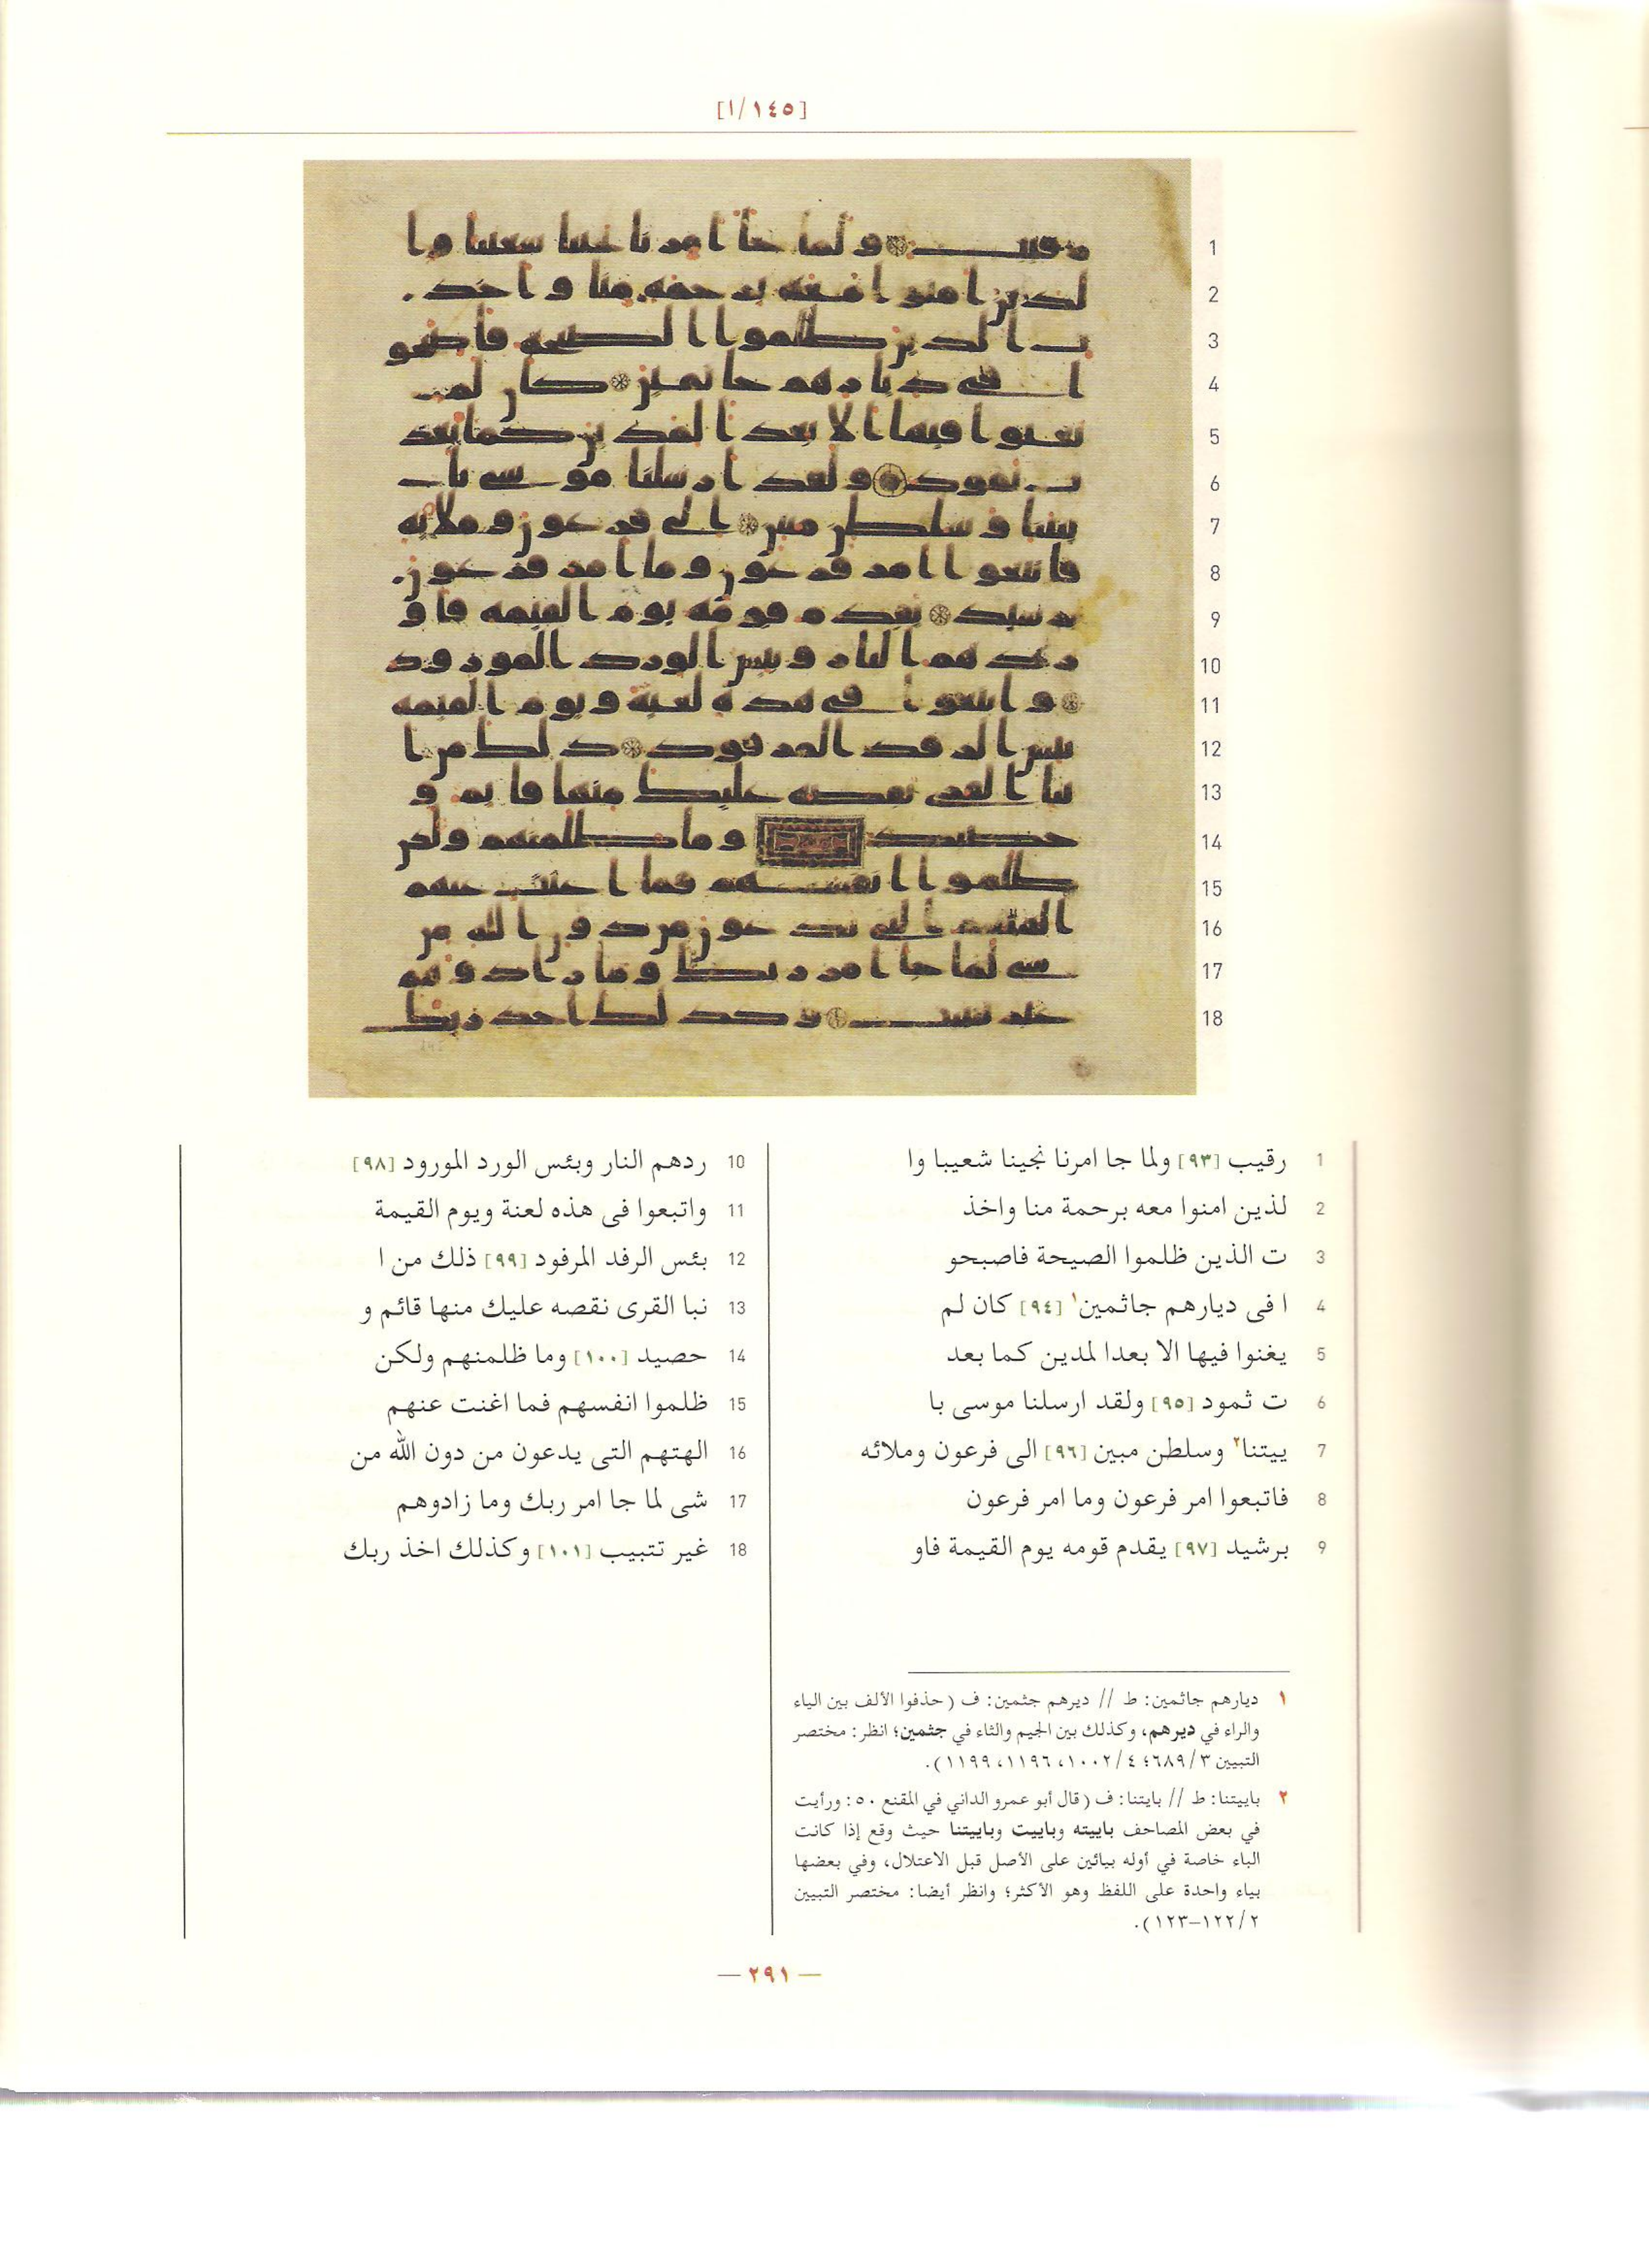 [١٤٥/١]
1 رقيب [٩٣] ولما جا امرنا نجينا شعيبا وا
2 لذين امنوا معه برحمة منا واخذ
3 ت الذين ظلموا الصيحة فاصبحو
4 ا فى ديارهم جاثمين١ [٩٤] كان لم
5 يغنوا فيها الا بعدا لمدين كما بعد
6 ت ثمود [٩٥] ولقد ارسلنا موسى با
7 ييتنا٢ وسلطن مبين [٩٦] الى فرعون وملائه
8 فاتبعوا امر فرعون وما امر فرعون
9 برشيد [٩٧] يقدم قومه يوم القيمة فاو
10 ردهم النار وبئس الورد المورود [٩٨]
11 واتبعوا فى هذه لعنة ويوم القيمة
12 بئس الرفد المرفود [٩٩] ذلك من ا
13 نبا القرى نقصه عليك منها قائم و
14 حصيد [١٠٠] وما ظلمنهم ولكن
15 ظلموا انفسهم فما اغنت عنهم
16 الهتهم التى يدعون من دون الله من
17 شى لما جا امر ربك وما زادوهم
18 غير تتبيب [١٠١] وكذلك اخذ ربك
١ ديارهم جاثمين: ط // ديرهم جثمين: ف (حذفوا الألف بين الياء
والراء في ديرهم، وكذلك بين الجيم والثاء في جثمين؛ انظر: مختصر
التبيين ٦٨٩/٣؛ ١٠٠٢/٤، ١١٩٦، ١١٩٩).
٢ باييتنا: ط // بايتنا: ف (قال أبو عمرو الداني في المقنع ٥٠: ورأيت
في بعض المصاحف باييته وباييت وباييتنا حيث وقع إذا كانت
الباء خاصة في أوله بيائين على الأصل قبل الاعتلال، وفي بعضها
بياء واحدة على اللفظ وهو الأكثر؛ وانظر أيضا: مختصر التبيين
١٢٢/٢–١٢٣).
— ٢٩١ —